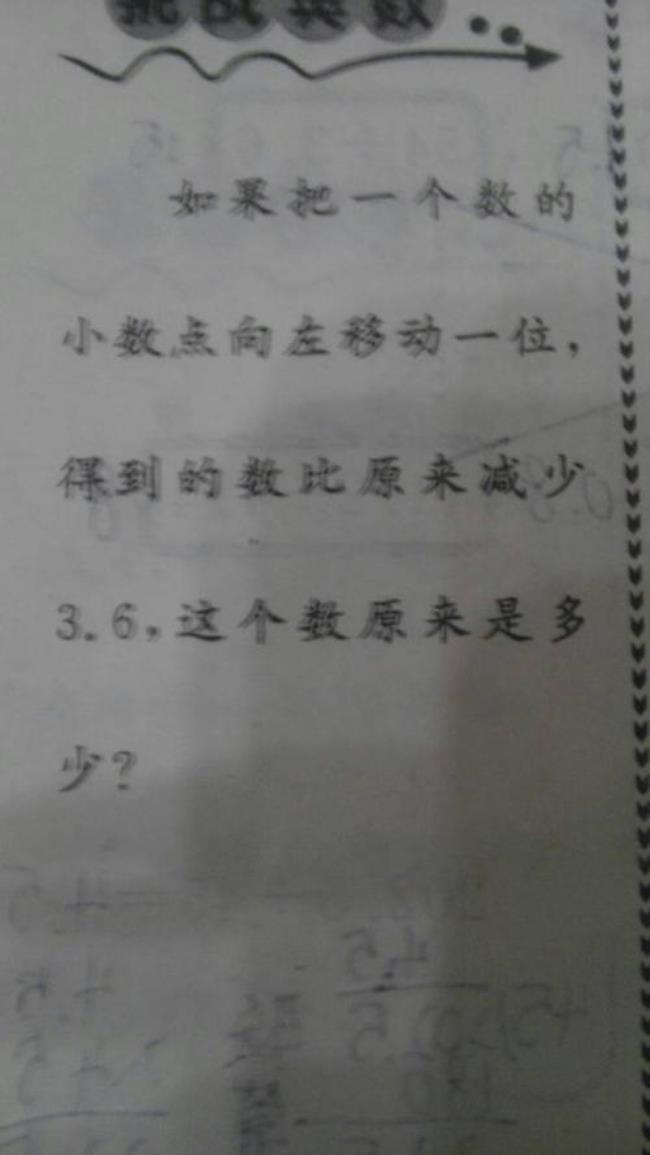 如果把一个数的
小数点向左移动一位，
得到的数比原来减少
3.6，这个数原来是多
少？